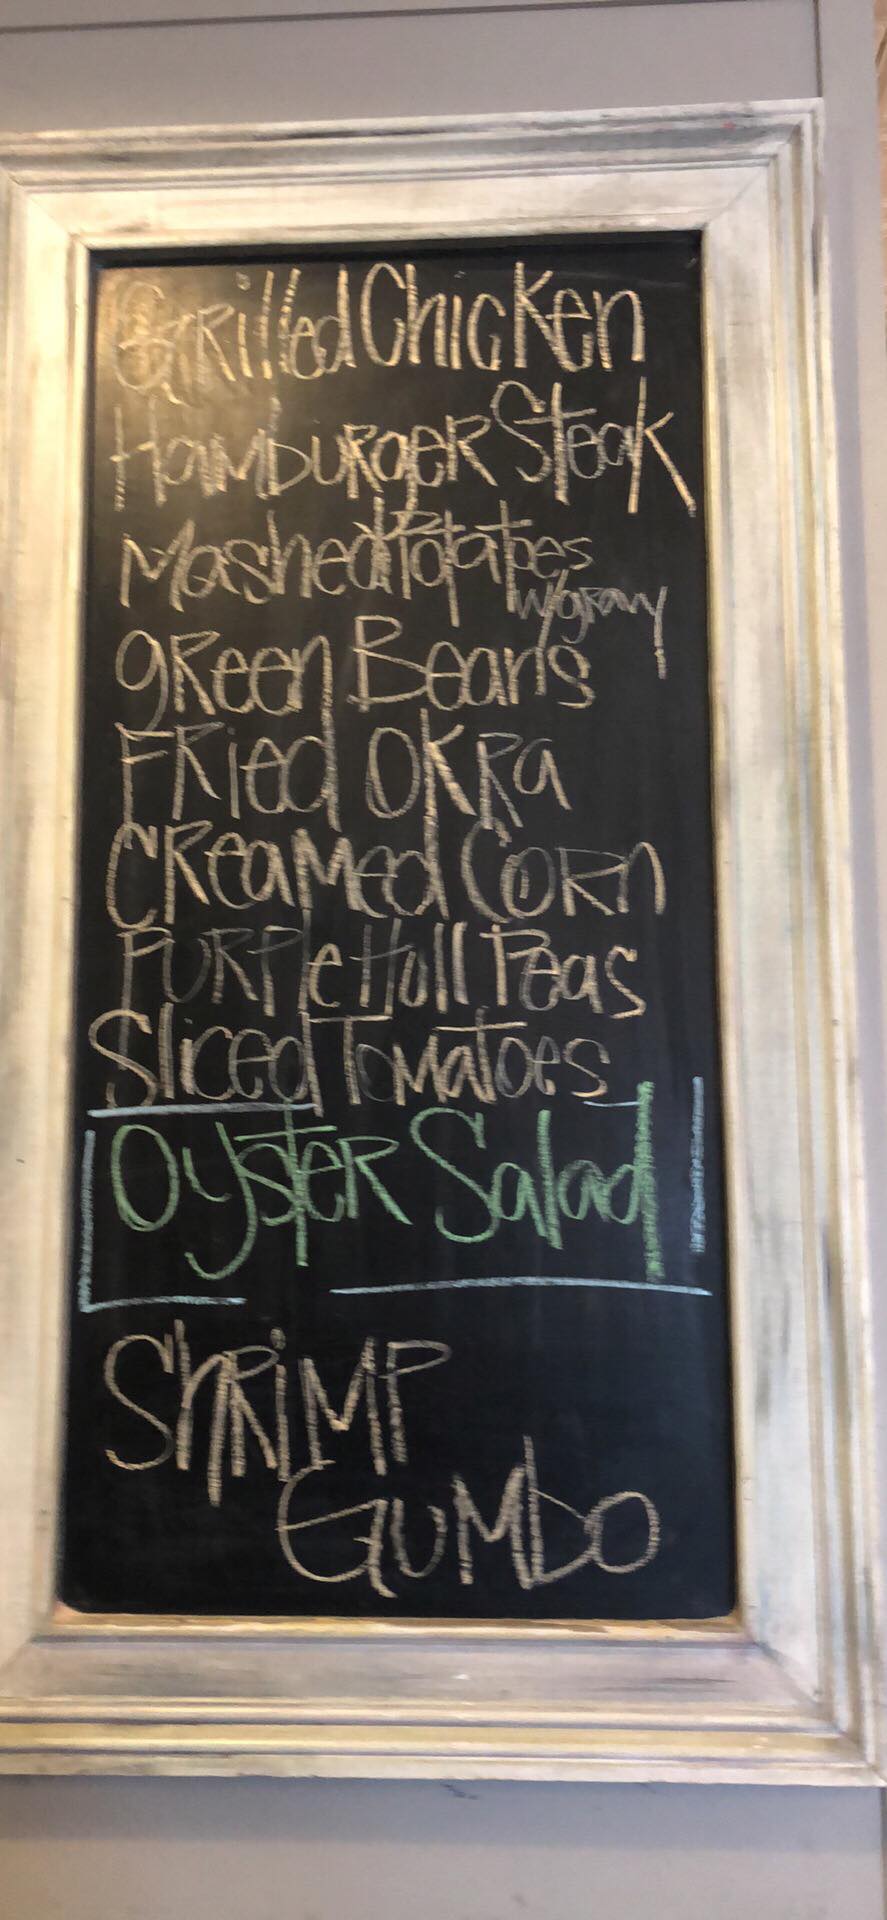 Grilled Chicken
Hamburger Steak
Mashed Potatoes
w/gravy
green Beans
Fried Okra
Creamed Corn
Purple Hull Peas
Sliced Tomatoes
Oyster Salad
Shrimp
Gumbo